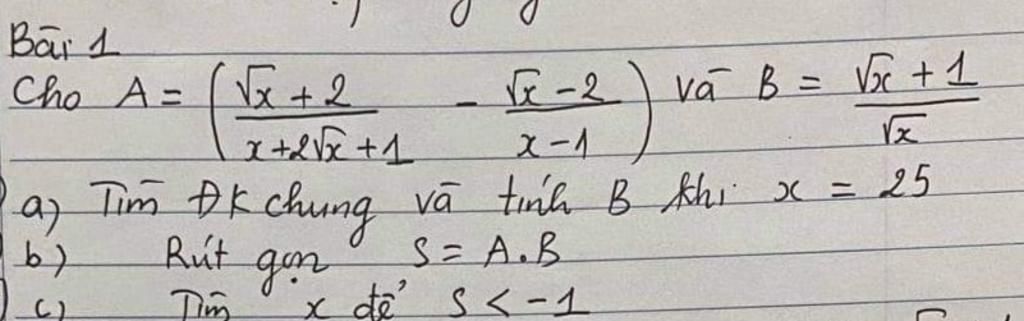 Bài 1
Cho A = ( (√x + 2)/(x + 2√x + 1) - (√x - 2)/(x - 1) ) và B = (√x + 1)/√x
a) Tìm ĐK chung và tính B khi x = 25
b) Rút gọn S = A.B
c) Tìm x để S < -1